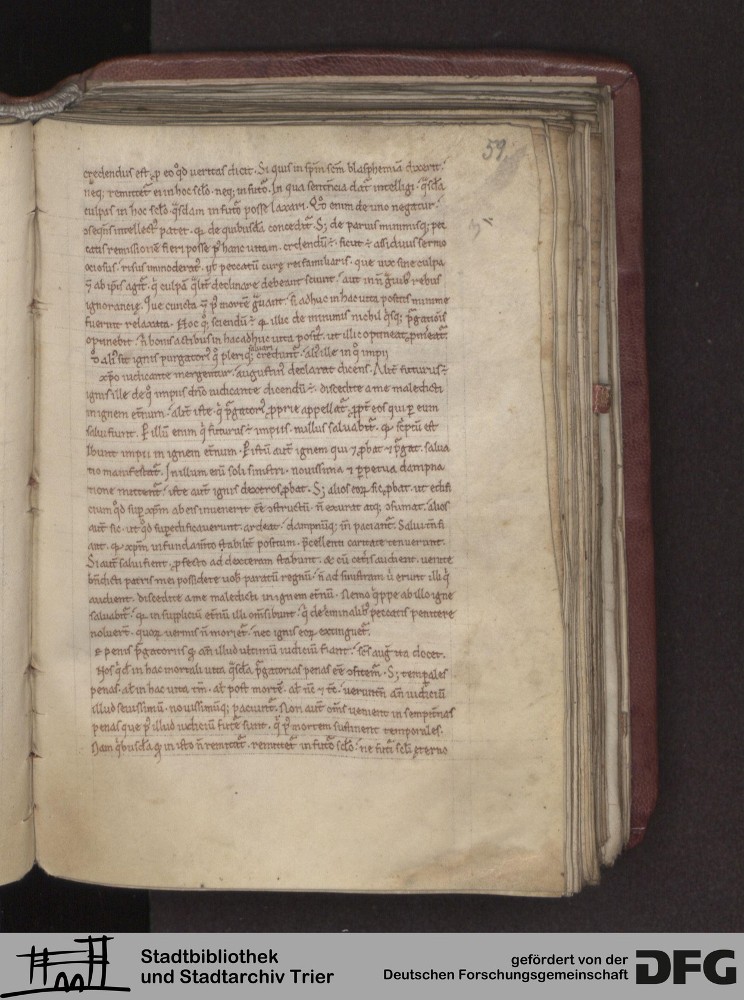 59.
credendus est, p eo qd veritas dicit. Si quis in spm scm blasphemiā dixerit.
neq; remittet̄ ei in hoc sclo. neq; in futō. In qua sentencia dat̄ intelligi. qsdā
culpas in hoc sclo. qsdam in futō posse laxari. Qd enim de uno negatur.
intellect patet. q de quibusdā concedit̄. S; de paruis minimisq; pec
catis remissionē fieri posse p hanc uitam. credendū ÷. sicut ÷ assiduus sermo
ociosus. risus inmoderat. ut peccatū curę rei familiaris. que uix sine culpa
ab ipis agit̄. q culpā qlit declinare debeant sciunt. aut in ñ guib rebus
ignorancię. Que cuncta & p mortē guant. si adhuc in hac uita positis minime
fuerint relaxata. Hoc q sciendū ÷ q illic de minimis nichil qsq; pgatiōis
optinebit. ñ bonis actibus in hac adhuc uita posit. ut illic optineat, pmeat̄.
ali sit ignis purgatori q pleriq; saluari credunt̄. ali ille in q impii
xpo iudicante mergentur. augustin declarat dicens. Alit futurus ÷
ignis ille de q impiis dno iudicante dicendū ÷. discedite a me maledicti
in ignem etnum. alit iste. q pgatori pprie appellat̄. ppt eos qui p eum
salui fiunt. P illū enim q futurus ÷ impiis. nullus saluabit̄. q scptū est
Ibunt impii in ignem etnum. P istū aut ignem qui & pbat & pgat. salua
tio manifestat̄. In illum erū soli sinistri. nouissima & ppetua dampna
tione mittent̄. iste aut ignis dexteros pbat. S; alios eor sic pbat. ut edifi
cium qd sup xpm ab eis inuenerit eē ostructū. ñ exurat atq; osumat. alios
aut sic. ut qd supedificauerunt. ardeat. dampniq; in paciant̄. Salui tñ fi
ant. q xpm in fundamto stabilit positum. pcellenti caritate tenuerunt.
Si aut salui fient, pfecto ad dexteram stabunt. & cū cetis audient. uenite
bndicti patris mei possidete uob paratū regnū. ñ ad sinistram u erunt illi q
audient. discedite a me maledicti in ignem etnū. Nemo qppe ab illo igne
saluabit̄. q in supliciū etnū illi oms ibunt. q de criminalib peccatis penitere
noluert̄. quor uermis ñ moriet̄. nec ignis eor extinguet̄.
e penis pgatoriis q an illud ultimū iudiciū fiant. scs aug ita docet.
Nos qd in hac mortali uita qsdā pgatorias penas eē ofitem̄. S; tempales
penas. al in hac uita tm. al post mortē. al nc & tc. ueruntñ añ iudiciū
illud seuissimū. nouissimūq; paciunt̄. Non aut oms uenient in sempitnas
penas que p illud iudiciū futē sunt. q p mortem sustinent temporales.
Nam qbusdā q in isto ñ remittit̄. remittet̄ in futō sclo. ne futi scli ęterno
Stadtbibliothek
und Stadtarchiv Trier
gefördert von der
Deutschen Forschungsgemeinschaft
DFG